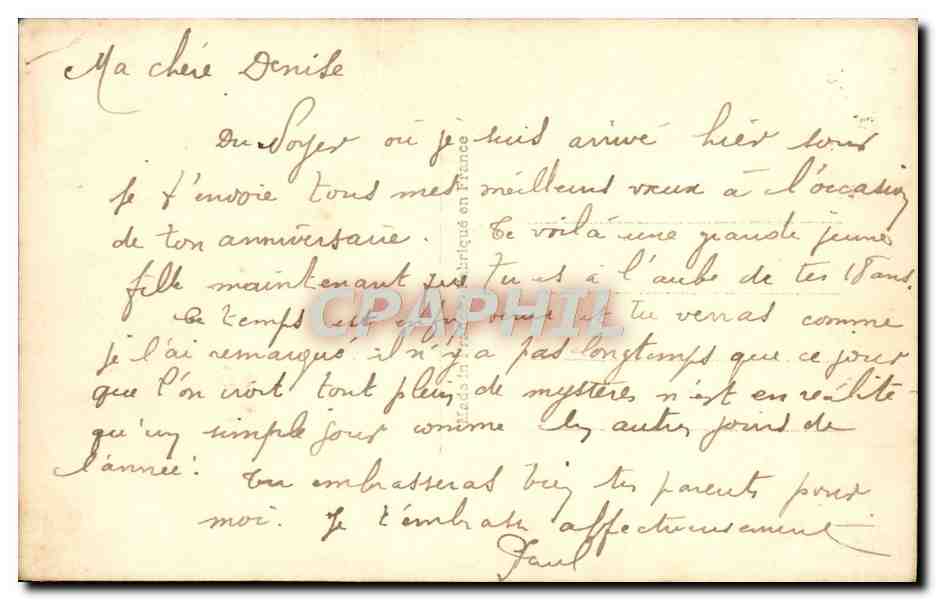 Ma chère Denise
Du Foyer où je suis arrivé hier soir
je t'envoie tous mes meilleurs vœux à l'occasion
de ton anniversaire. Te voilà une grande jeune
fille maintenant tu es à l'aube de tes 18 ans.
Ce temps est enfin venu et tu verras comme
je l'ai remarqué il n'y a pas longtemps que ce jour
que l'on croit tout plein de mystères n'est en réalité
qu'un simple jour comme les autres jours de
l'année.
Tu embrasseras bien tes parents pour
moi. Je t'embrasse affectueusement
Paul
Made in France Fabriqué en France
CPAPHIL